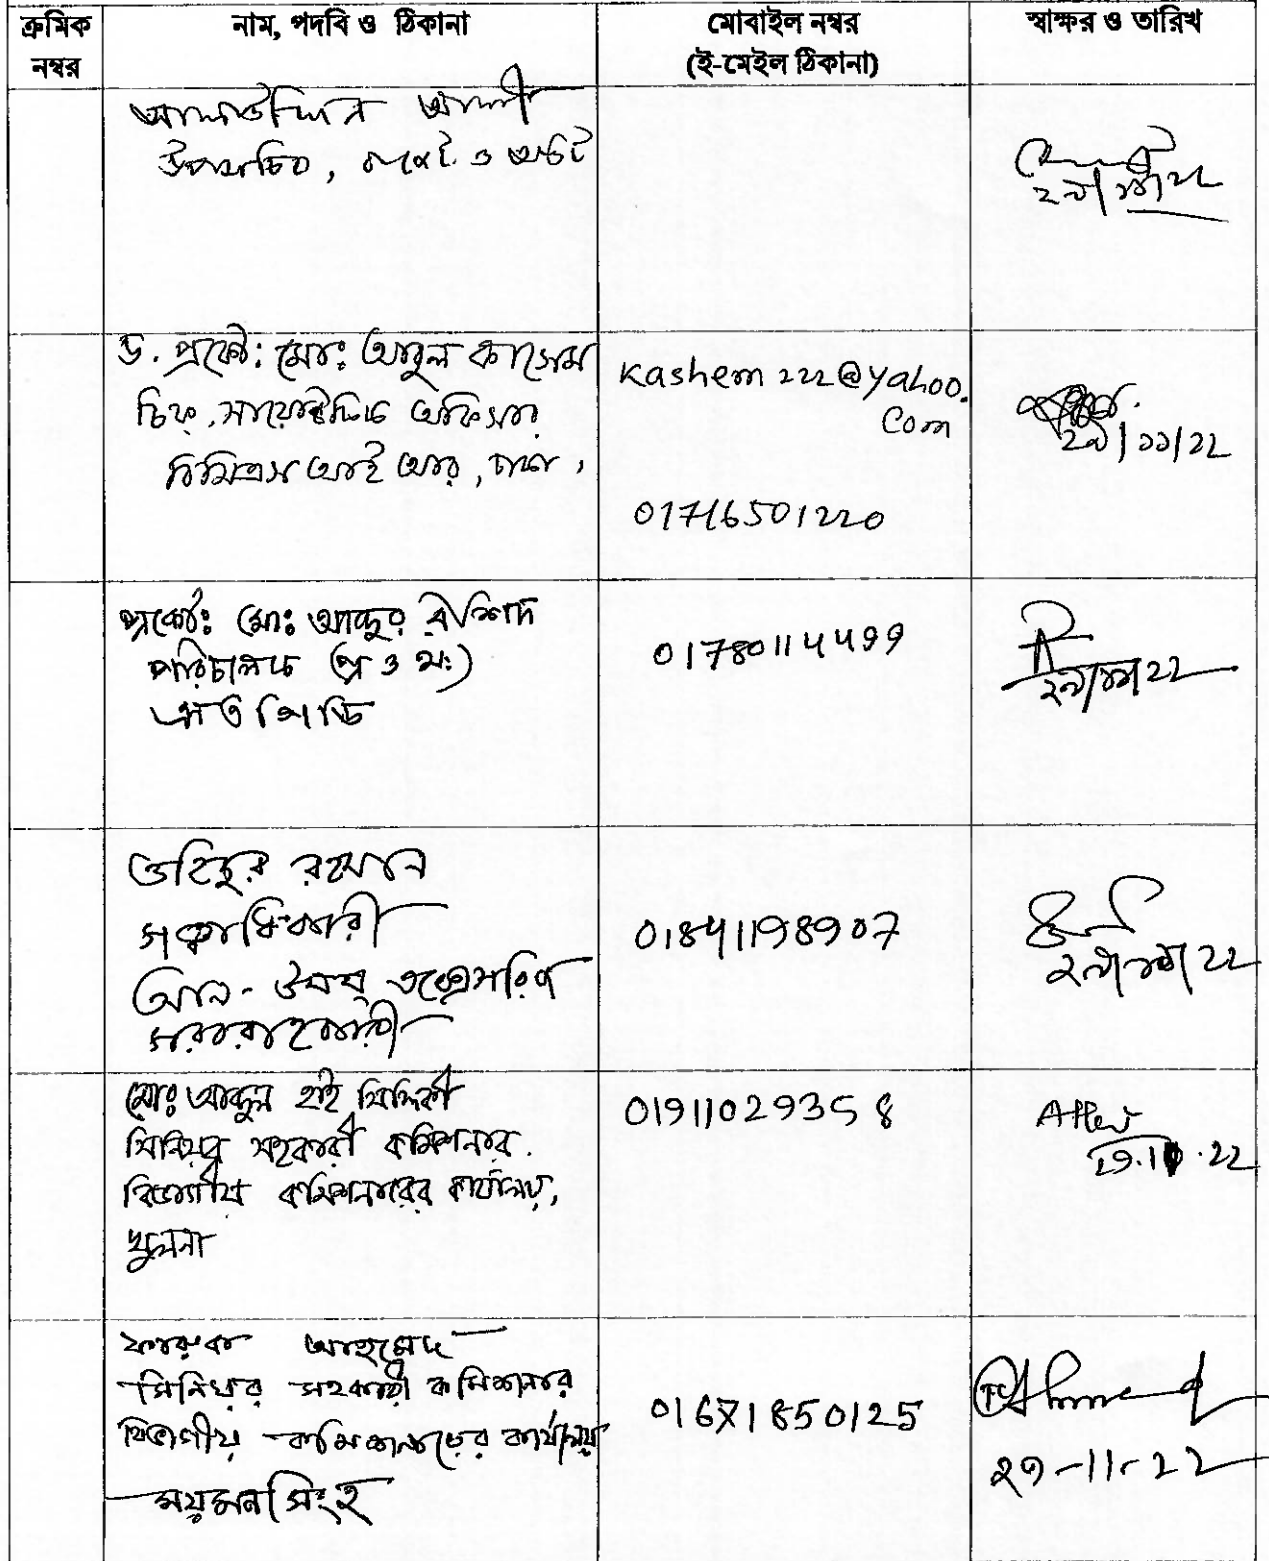 ক্রমিক নম্বর
নাম, পদবি ও ঠিকানা
মোবাইল নম্বর
(ই-মেইল ঠিকানা)
স্বাক্ষর ও তারিখ
আলাউদ্দিন আলী
উপসচিব, ও
২৯/১১/২২
ড. প্রকৌ: মোঃ আবুল কাসেম
চিফ সায়েন্টিফিক অফিসার
বিসিএসআইআর, ঢাকা,
kashem222@yahoo.
com
01716501220
২৯/১১/২২
প্রকৌঃ মোঃ আব্দুর রশিদ
পরিচালক (প্র ও অঃ)
01780114499
২৯/১১/২২
ওহিদুর রহমান
সত্ত্বাধিকারী
সরবরাহকারী
01841198907
২৯/১১/২২
মোঃ আব্দুল হাই সিদ্দিকী
সিনিয়র সহকারী কমিশনার
বিভাগীয় কমিশনারের কার্যালয়,
খুলনা
.22
আহমেদ
সিনিয়র সহকারী কমিশনার
বিভাগীয় কমিশনারের কার্যালয়
ময়মনসিংহ
01671850125
২৯-11-22